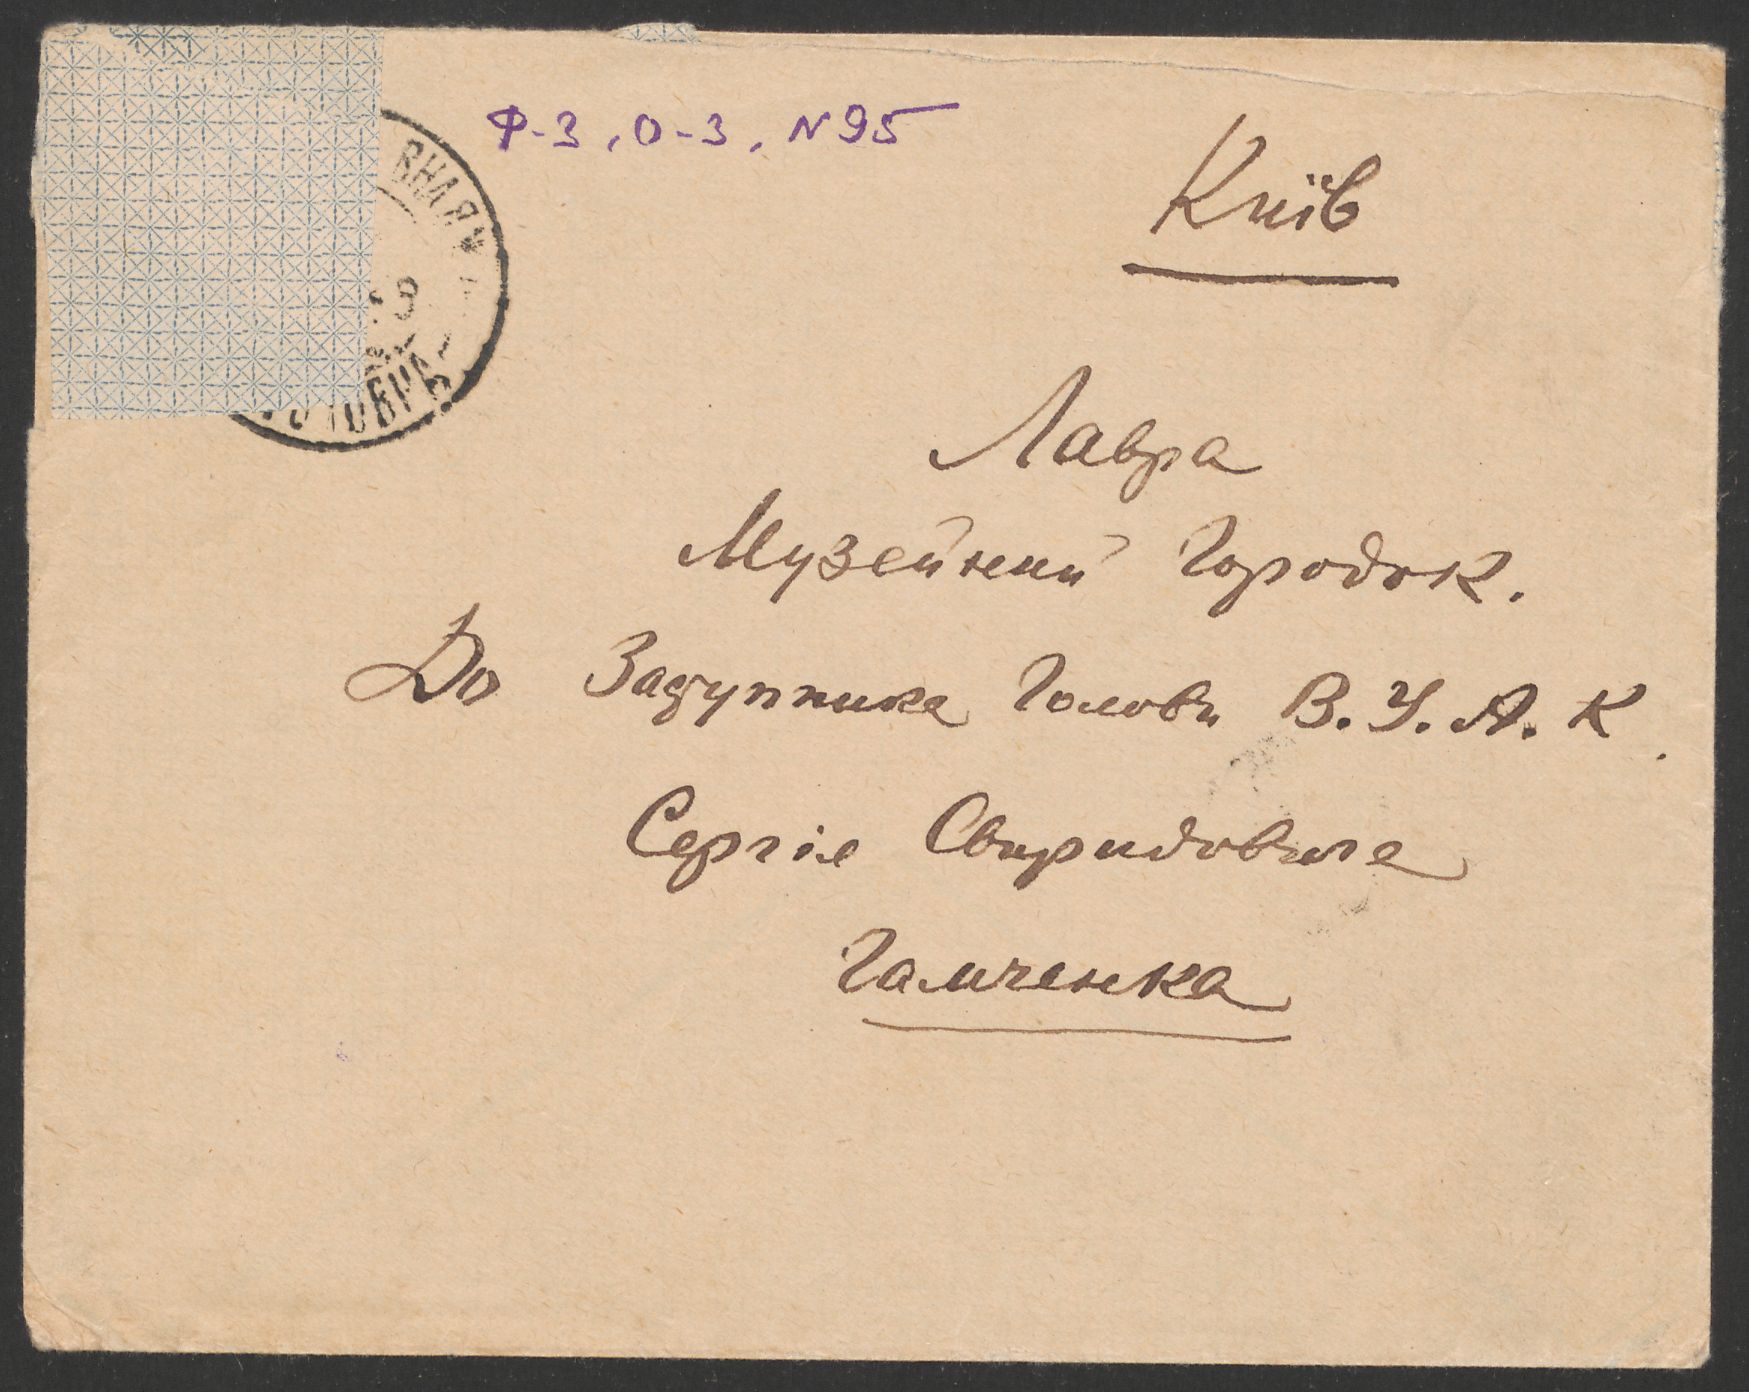 Ф-3, О-3, N95
Київ
Лавра
Музейний Городок.
До Заступника Голови В.У.А.К.
Сергія Свиридовича
Гамченка